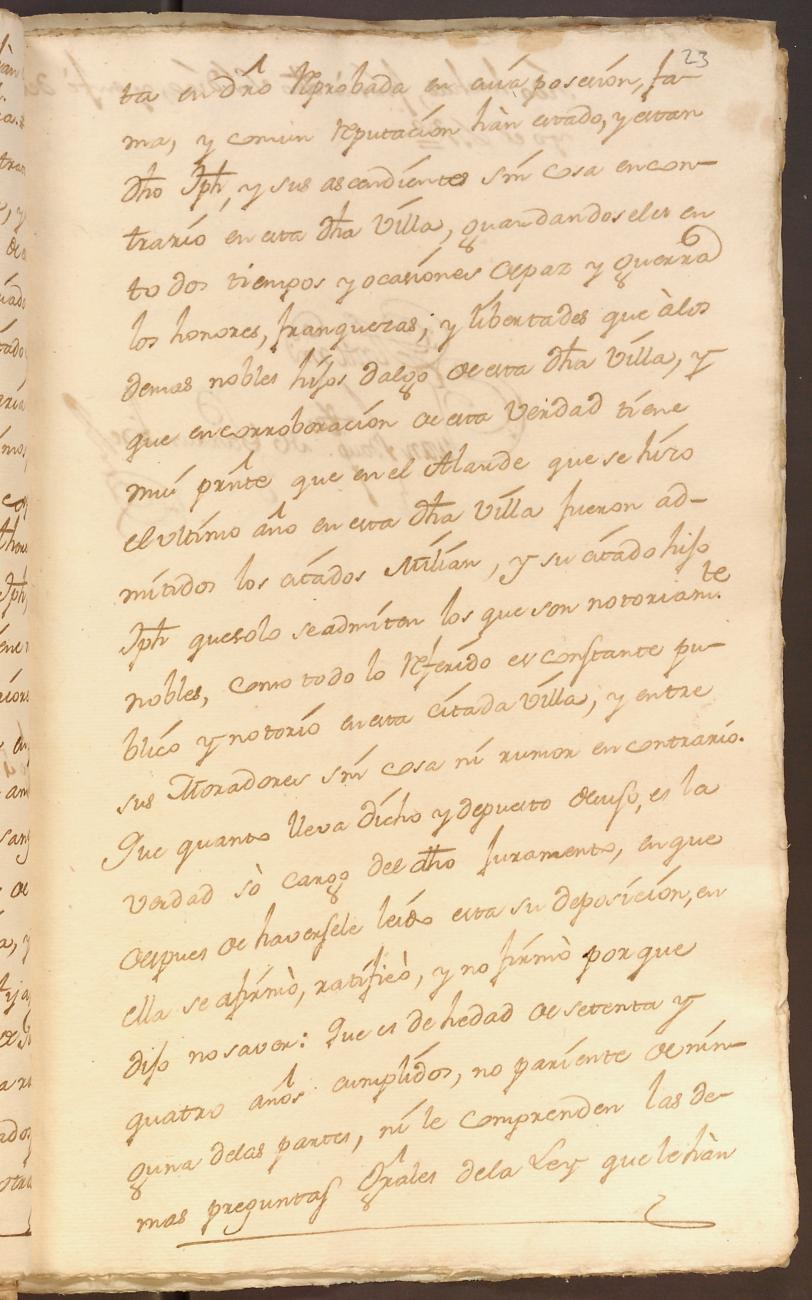 23
ta en dro Reprobada en cuia posesión, fa-
ma, y comun reputación hàn estado, y estan
dho Jph, y sus ascendientes sin cosa encon-
trario en esta dha Villa, guardandoseles en
todos tiempos y ocasiones de paz y guerra
los honores, franquezas, y libertades que àlos
demas nobles hijos dalgo de esta dha Villa, y
que en corroboración de esta verdad tiene
mui prnte que en el Alarde que se hizo
el ultimo año en esta dha Villa fueron ad-
mitidos los citados Millán, y su citado hijo
Jph que solo se admiten los que son notoriamte
nobles, como todo lo referido es constante pu-
blico y notorio en esta citada Villa, y entre
sus Moradores sin cosa ni rumor en contrario.
Que quanto lleva dicho y depuesto de uso, es la
verdad sò cargo del dho Juramento, en que
despues de haversele leido esta su deposición, en
ella se afirmò, ratificò, y no firmò porque
dijo no saver: Que es de hedad de setenta y
quatro años cumplidos, no pariente de nin-
guna delas partes, ni le comprenden las de-
mas preguntas Grales dela Ley que le hàn